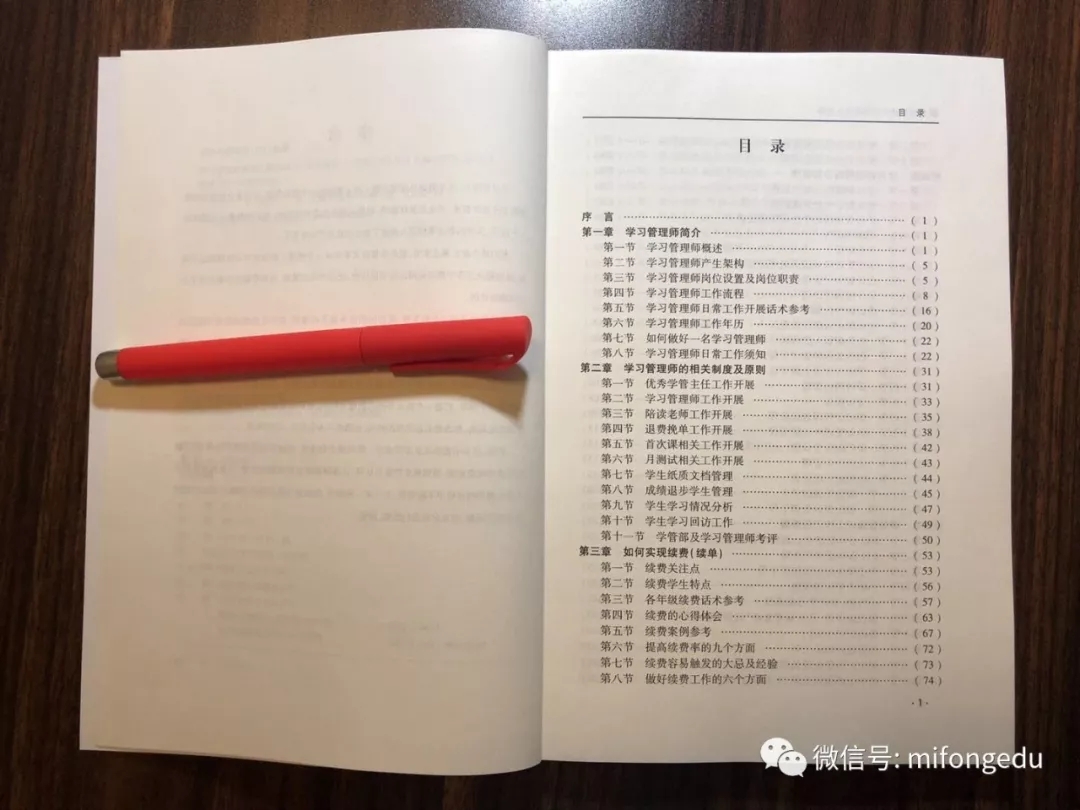 目 录
目 录
序 言 ………………………………………… ( 1 )
第一章 学习管理师简介 ………………………………………… ( 1 )
第一节 学习管理师概述 ………………………………………… ( 1 )
第二节 学习管理师产生架构 ………………………………………… ( 5 )
第三节 学习管理师岗位设置及岗位职责 ………………………………………… ( 5 )
第四节 学习管理师工作流程 ………………………………………… ( 8 )
第五节 学习管理师日常工作开展话术参考 ………………………………………… ( 16 )
第六节 学习管理师工作年历 ………………………………………… ( 20 )
第七节 如何做好一名学习管理师 ………………………………………… ( 22 )
第八节 学习管理师日常工作须知 ………………………………………… ( 22 )
第二章 学习管理师的相关制度及原则 ………………………………………… ( 31 )
第一节 优秀学管主任工作开展 ………………………………………… ( 31 )
第二节 学习管理师工作开展 ………………………………………… ( 33 )
第三节 陪读老师工作开展 ………………………………………… ( 35 )
第四节 退费挽单工作开展 ………………………………………… ( 38 )
第五节 首次课相关工作开展 ………………………………………… ( 42 )
第六节 月测试相关工作开展 ………………………………………… ( 43 )
第七节 学生纸质文档管理 ………………………………………… ( 44 )
第八节 成绩退步学生管理 ………………………………………… ( 45 )
第九节 学生学习情况分析 ………………………………………… ( 47 )
第十节 学生学习回访工作 ………………………………………… ( 49 )
第十一节 学管部及学习管理师考评 ………………………………………… ( 50 )
第三章 如何实现续费(续单) ………………………………………… ( 53 )
第一节 续费关注点 ………………………………………… ( 53 )
第二节 续费学生特点 ………………………………………… ( 56 )
第三节 各年级续费话术参考 ………………………………………… ( 57 )
第四节 续费的心得体会 ………………………………………… ( 63 )
第五节 续费案例参考 ………………………………………… ( 67 )
第六节 提高续费率的九个方面 ………………………………………… ( 72 )
第七节 续费容易触发的大忌及经验 ………………………………………… ( 73 )
第八节 做好续费工作的六个方面 ………………………………………… ( 74 )
· 1 ·
微信号: mifongedu